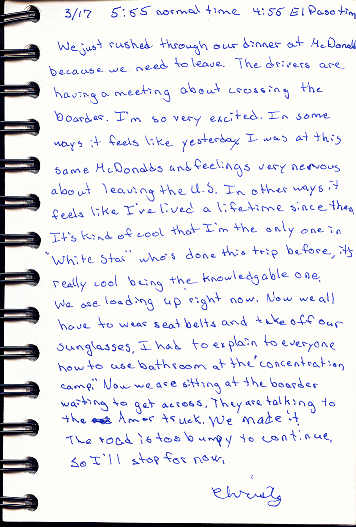 3/17 5:55 normal time 4:55 El Paso time
We just rushed through our dinner at McDonalds
because we need to leave. The drivers are
having a meeting about crossing the
boarder. I'm so very excited. In some
ways it feels like yesterday I was at this
same McDonalds and feelings very nervous
about leaving the U.S. In other ways it
feels like I've lived a lifetime since then
It's kind of cool that I'm the only one in
"White Star" who's done this trip before, it's
really cool being the knowledgable one.
We are loading up right now. Now we all
have to wear seatbelts and take off our
sunglasses. I had to explain to everyone
how to use bathroom at the "concentration
camp." Now we are sitting at the boarder
waiting to get across. They are talking to
the truck. We made it
The road is too bumpy to continue,
so I'll stop for now.
Christy